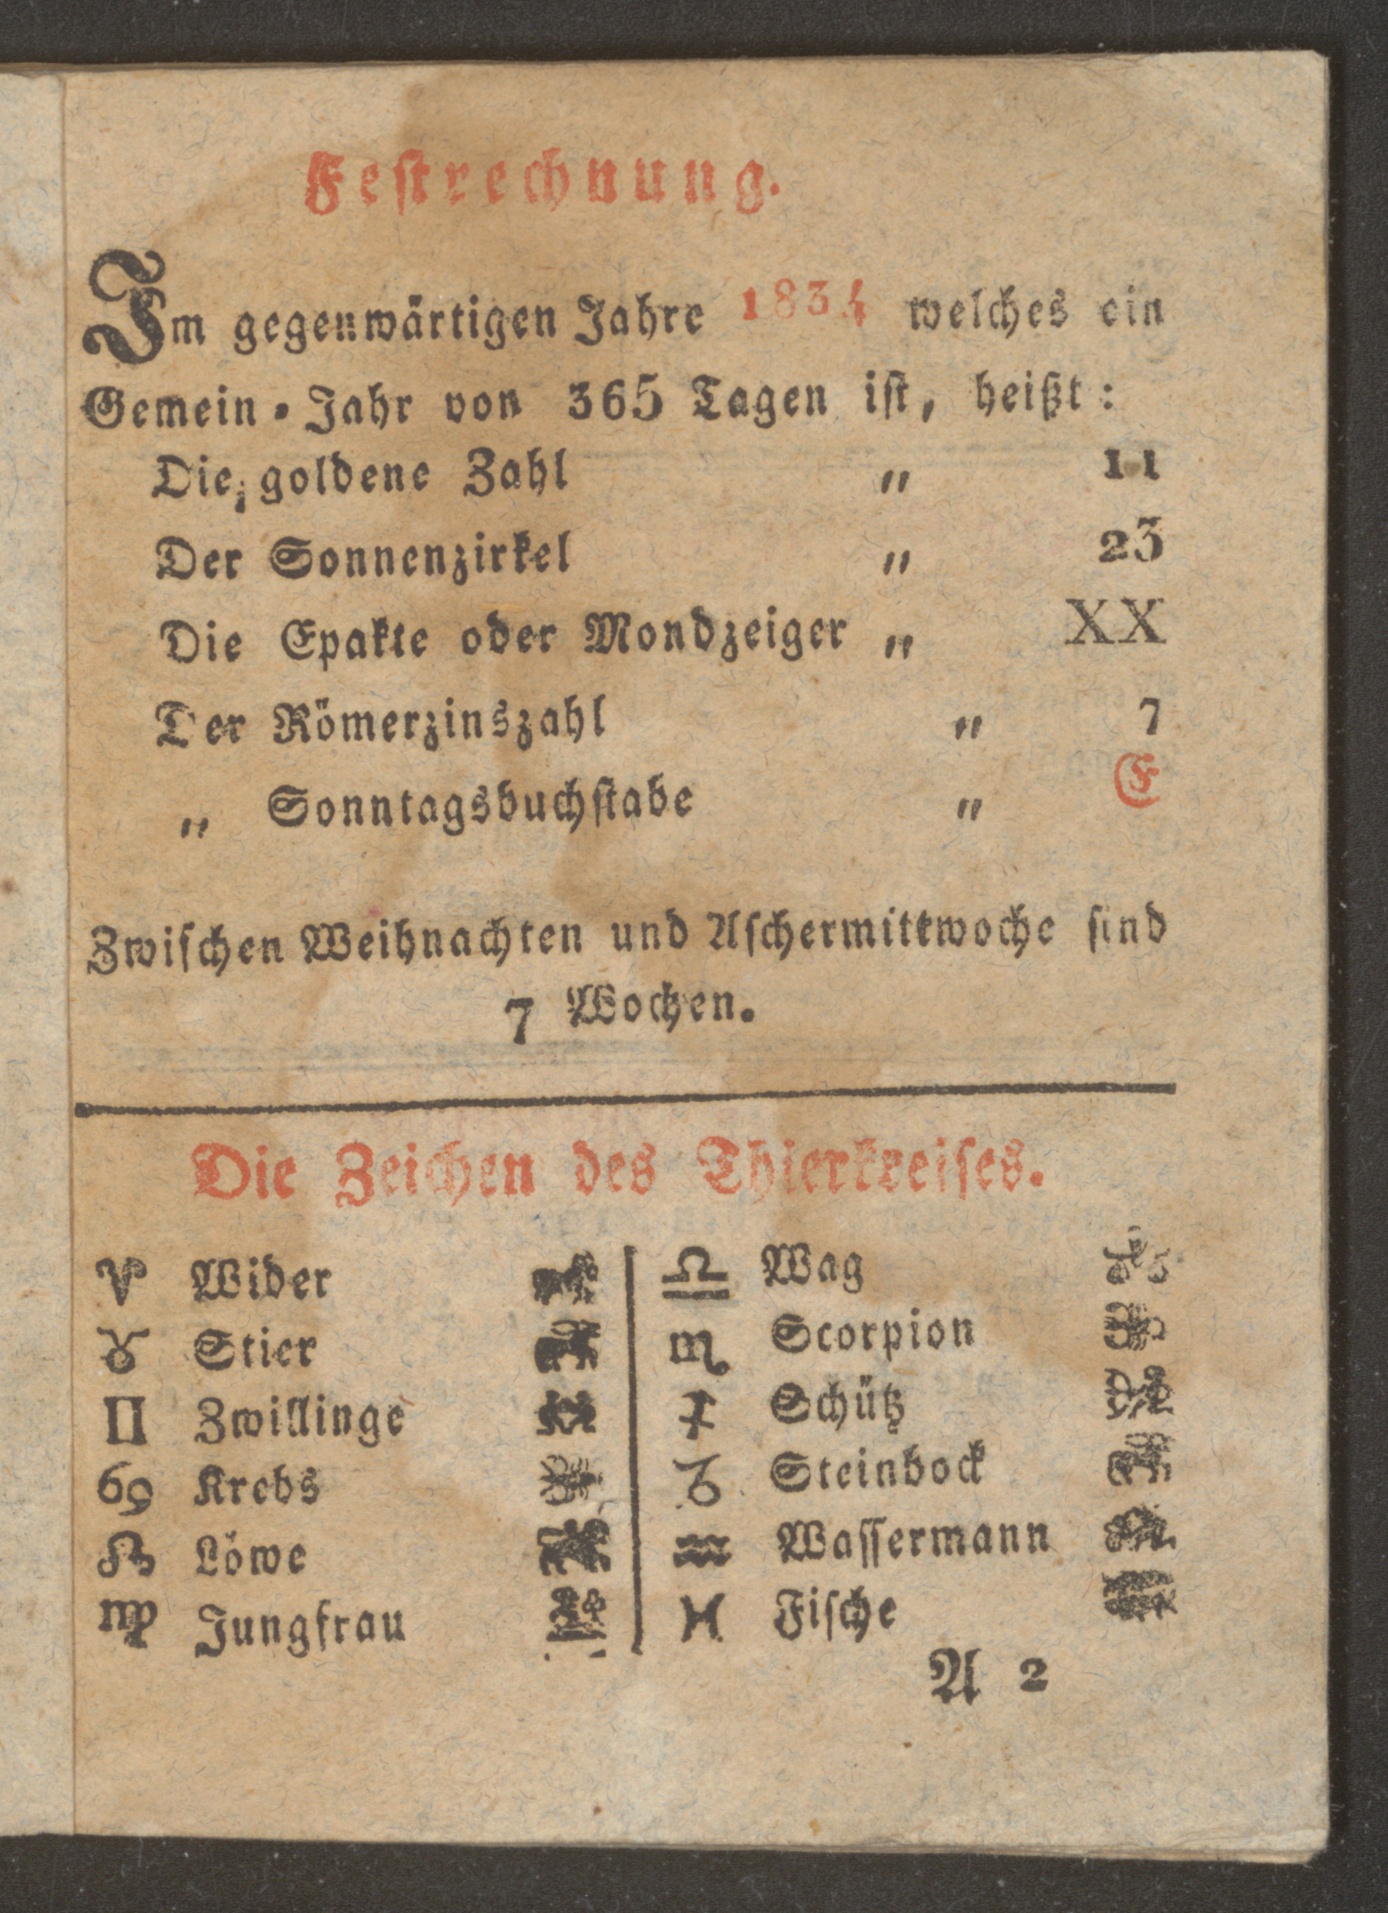 Festrechnung.
Im gegenwärtigen Jahre 1834 welches ein
Gemein-Jahr von 365 Tagen ist, heißt:
Die goldene Zahl „ 11
Der Sonnenzirkel „ 23
Die Epakte oder Mondzeiger „ XX
Der Römerzinszahl „ 7
„ Sonntagsbuchstabe „ E
Zwischen Weihnachten und Aschermittwoche sind
7 Wochen.
Die Zeichen des Thierkreises.
♈ Wider
♉ Stier
♊ Zwillinge
♋ Krebs
♌ Löwe
♍ Jungfrau
♎ Wag
♏ Scorpion
♐ Schütz
♑ Steinbock
♒ Wassermann
♓ Fische
A 2